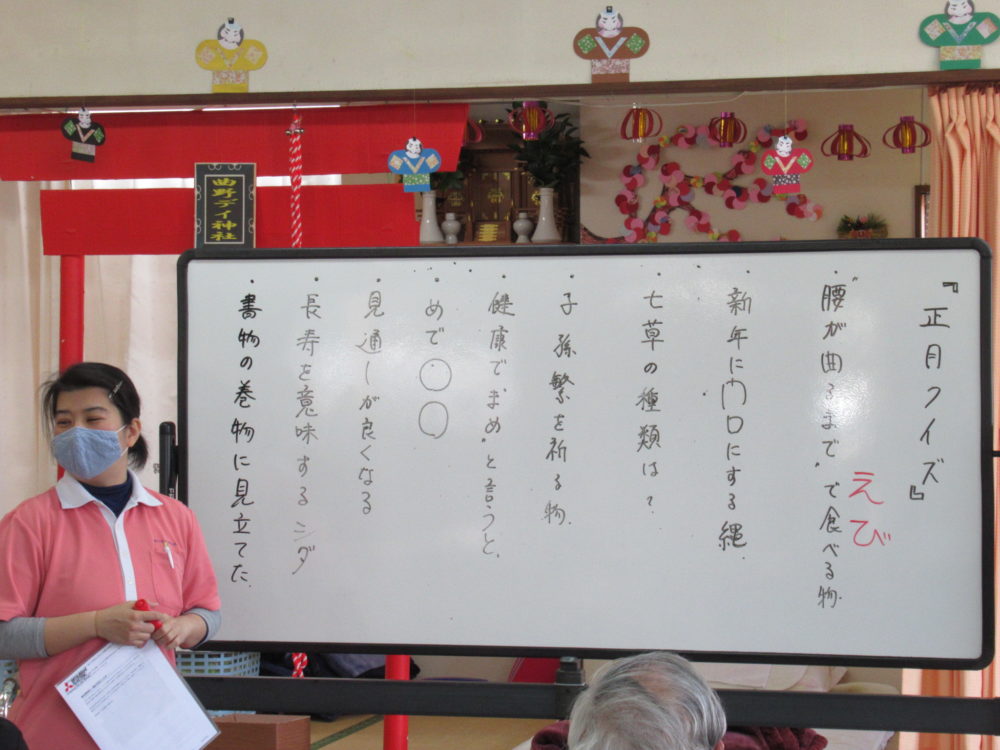 『正月クイズ』
・"腰が曲るまで"で食べる物.
えび
・新年に門口にする縄.
・七草の種類は？
・子孫繁を祈る物.
・健康で"まめ"と言うと、
・めで〇〇
・見通しが良くなる
・長寿を意味するシダ
・書物の巻物に見立てた.
曲野デイ神社